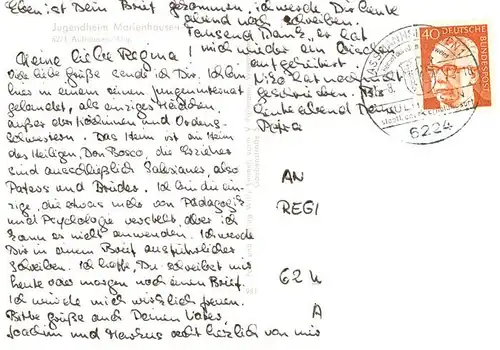 Eben ist Dein Brief gekommen, ich werde Dir heute
abend noch schreiben.
Tausend Dank, er hat
mich wieder ein bisschen
aufgeheitert
hat noch nicht
geschrieben. Bis
heute abend Deine
Petra
Jugendheim Marienhausen
Meine liebe Regina!
Viele liebe Grüße sende ich Dir. Ich bin
hier in einem reinen Jungeninternat
gelandet, als einziges Mädchen,
außer den Köchinnen und Ordens-
schwestern. Das Heim ist ein Heim
des Heiligen, Don Bosco, die Erzieher
sind ausschließlich Salesianer, also
Paters und Brüder. Ich bin die ein-
zige, die etwas mehr von Pädagogik
und Psychologie versteht, aber ich
kann es nicht anwenden. Ich werde
Dir in einem Brief ausführlicher
schreiben. Ich hoffe, Du schreibst mir
heute oder morgen noch einen Brief.
Ich würde mich wirklich freuen.
Bitte grüße auch Deinen Vater,
Joachim und Markus recht herzlich von mir
DEUTSCHE BUNDESPOST
40
6224
AN
REGI
62
A